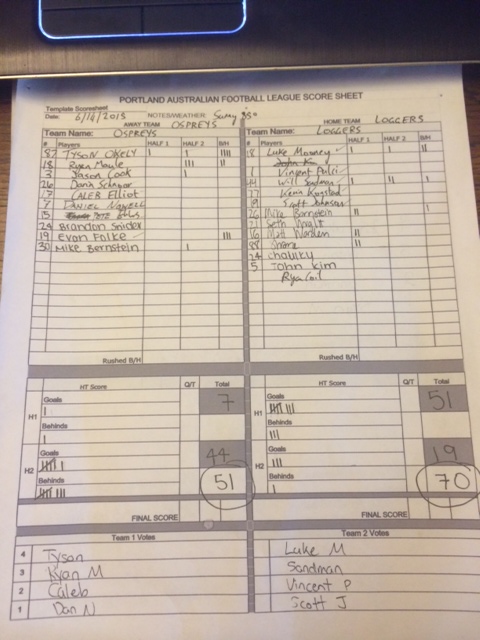 PORTLAND AUSTRALIAN FOOTBALL LEAGUE SCORE SHEET
Template Scoresheet
Date: 6/14/2015 NOTES/WEATHER: Sunny 85°
AWAY TEAM OSPREYS
HOME TEAM LOGGERS
Team Name: OSPREYS
# Players HALF 1 HALF 2 B/H
87 TYSON OKELY I I IIII
18 Ryan Moyle III II
3 Jason Cook I I
26 Dana
17 CALEB Elliot
7 DANIEL NOWELL
15 PETE
24 Brandon Snider
19 Evan Folke III
30 MIKE Bernstein I
Rushed B/H
Team Name: LOGGERS
# Players HALF 1 HALF 2 B/H
18 Luke Mooney I I II
John Kim
1 Vincent Pulci
44 Will Sandman I II I
77 Kevin
19 Scott Johnson
26 Mike Bornstein II I
21 Seth Wright
16 Matt Worden II
88 Shane II
24 Chaulky
5 John Kim
Rya
Rushed B/H
HT Score Q/T Total
H1 Goals I 7
Behinds I
H2 Goals IIII I 44
Behinds IIII III 51
FINAL SCORE
HT Score Q/T Total
H1 Goals IIII III 51
Behinds III
H2 Goals III 19
Behinds I 70
FINAL SCORE
Team 1 Votes
4 Tyson
3 Ryan M
2 Caleb
1 Dan N
Team 2 Votes
Luke M
Sandman
Vincent P
Scott J